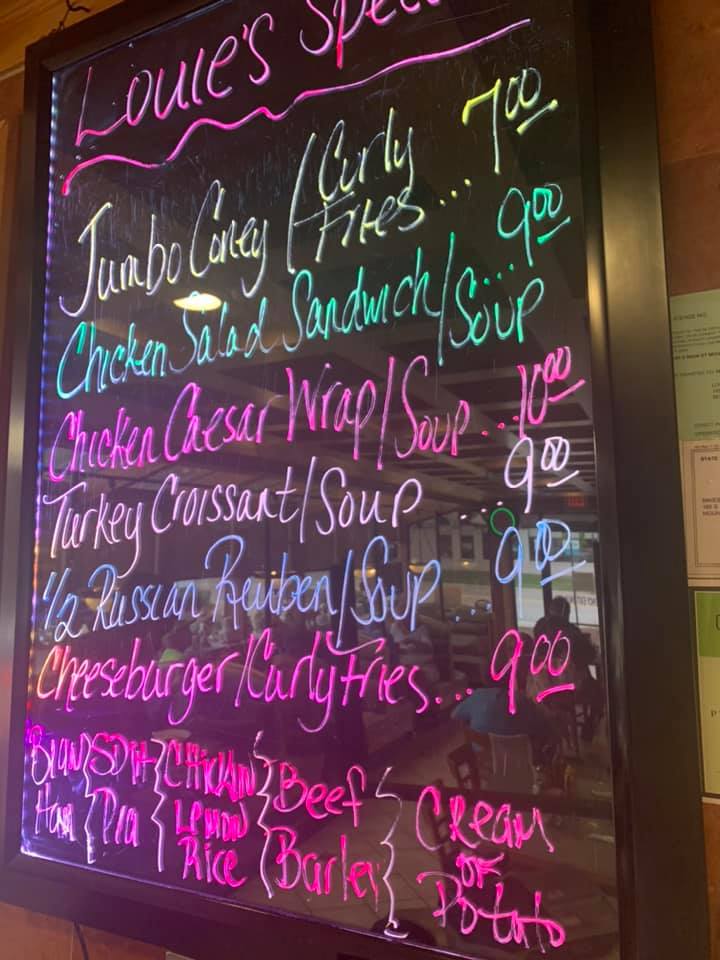 Louie's Spec
Jumbo Coney / Curly Fries... 7.00
Chicken Salad Sandwich/Soup ... 9.00
Chicken Caesar Wrap/Soup ... 10.00
Turkey Croissant/Soup ... 9.00
1/2 Russian Reuben/Soup ... 9.00
Cheeseburger/Curly Fries... 9.00
Bean Ham
Split Pea
Chicken Lemon Rice
Beef Barley
Cream of Potato